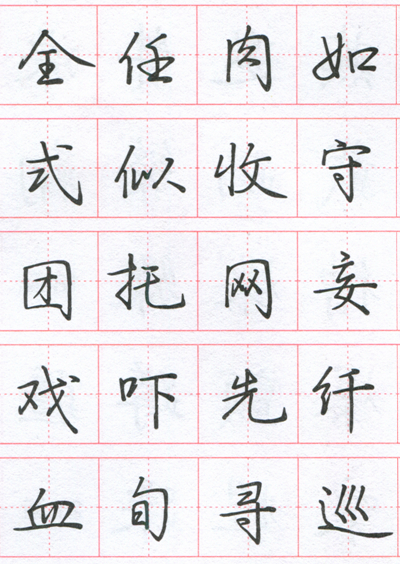 全任肉如
式似收守
团托网妄
戏吓先纤
血旬寻巡